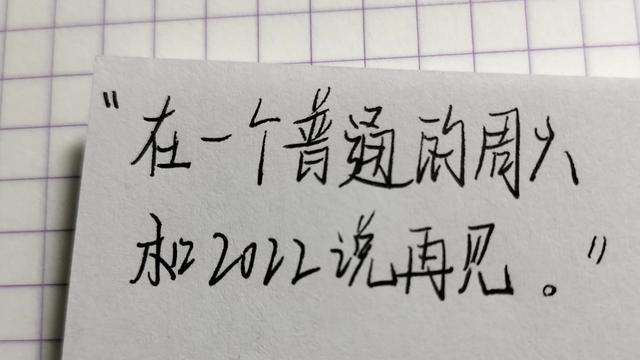 "在一个普通的周六
和2022说再见。"